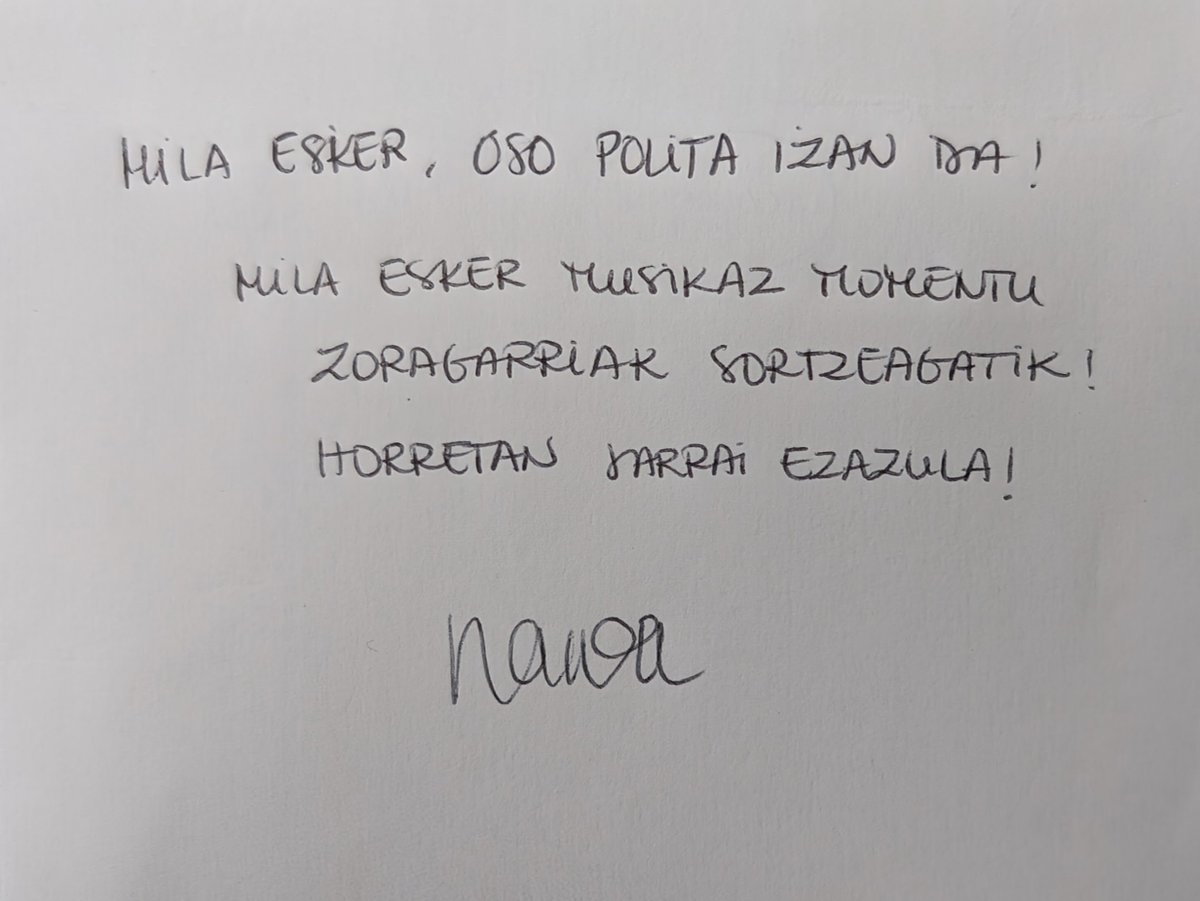 MILA ESKER, OSO POLITA IZAN DA!
MILA ESKER MUSIKAZ MOMENTU
ZORAGARRIAK SORTZEAGATIK!
HORRETAN JARRAI EZAZULA!